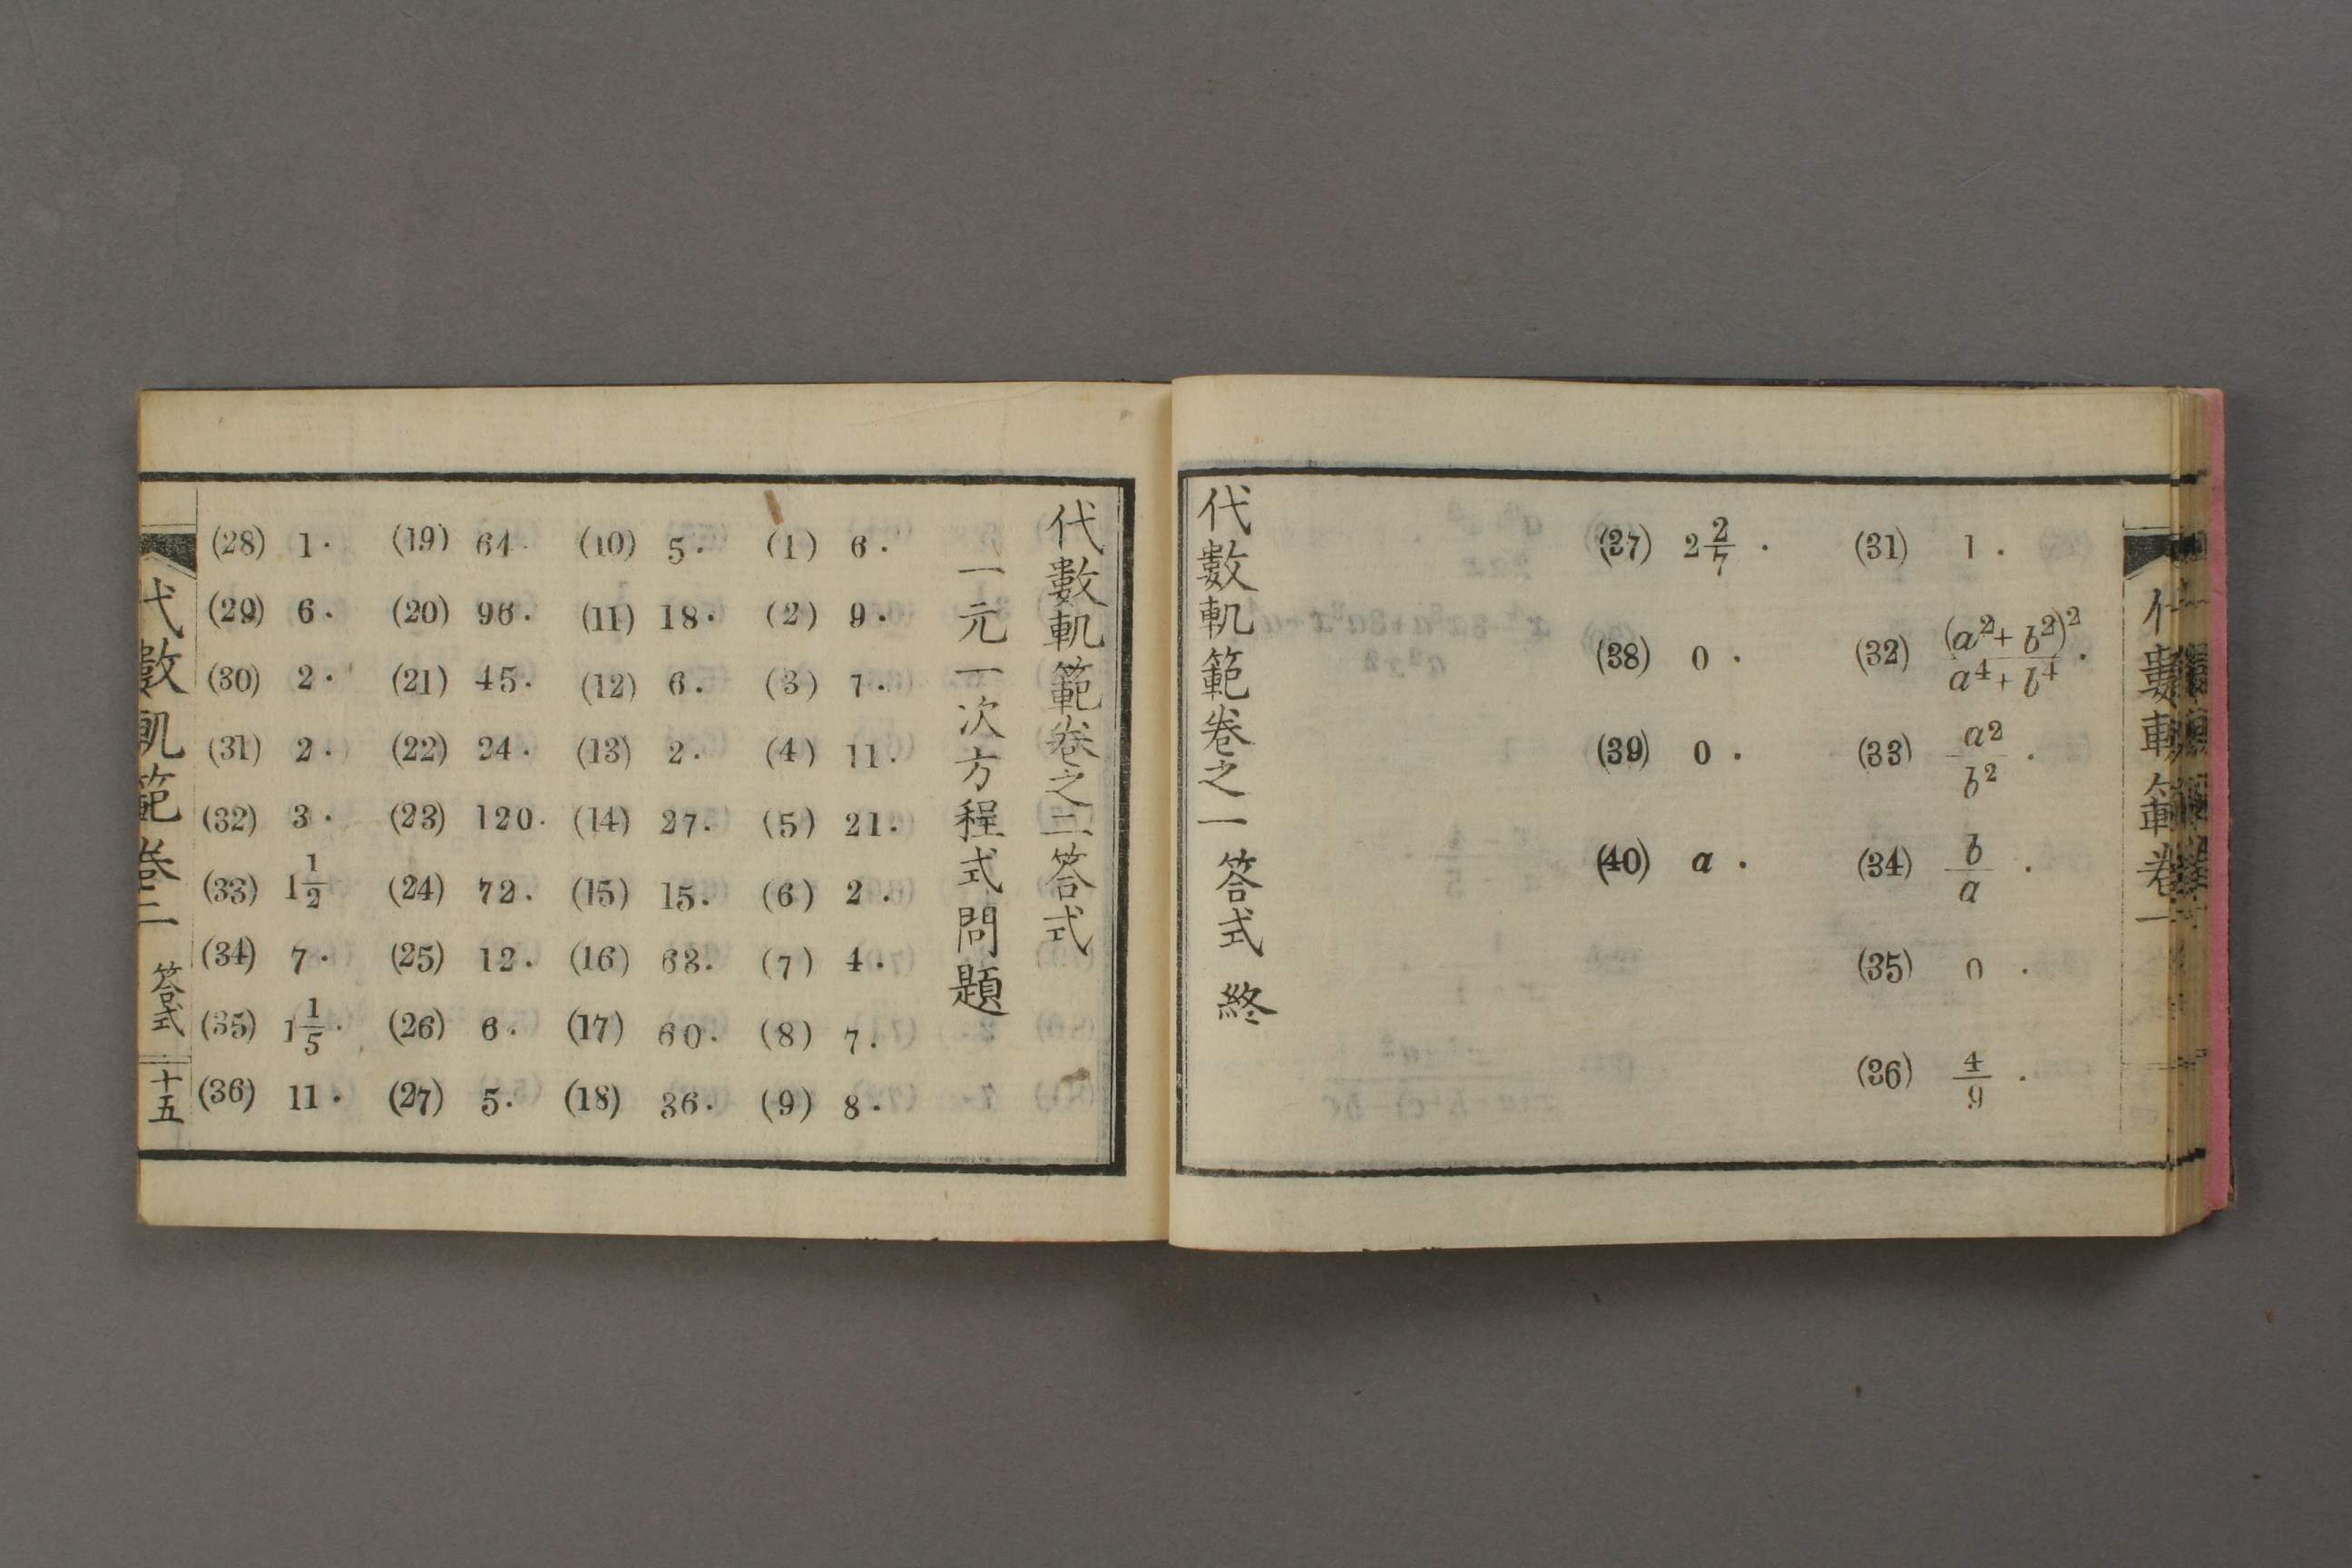 代數軌範卷一
(31) 1.
(32) (a²+b²)²/(a⁴+b⁴).
(33) a²/b².
(34) b/a.
(35) 0.
(36) 4/9.
(37) 2 2/7.
(38) 0.
(39) 0.
(40) a.
代數軌範卷之一答式終
代數軌範卷之二答式
一元一次方程式問題
(1) 6.
(2) 9.
(3) 7.
(4) 11.
(5) 21.
(6) 2.
(7) 4.
(8) 7.
(9) 8.
(10) 5.
(11) 18.
(12) 6.
(13) 2.
(14) 27.
(15) 15.
(16) 63.
(17) 60.
(18) 36.
(19) 64.
(20) 96.
(21) 45.
(22) 24.
(23) 120.
(24) 72.
(25) 12.
(26) 6.
(27) 5.
(28) 1.
(29) 6.
(30) 2.
(31) 2.
(32) 3.
(33) 1 1/2
(34) 7.
(35) 1 1/5.
(36) 11.
代數軌範卷二 答式 十五